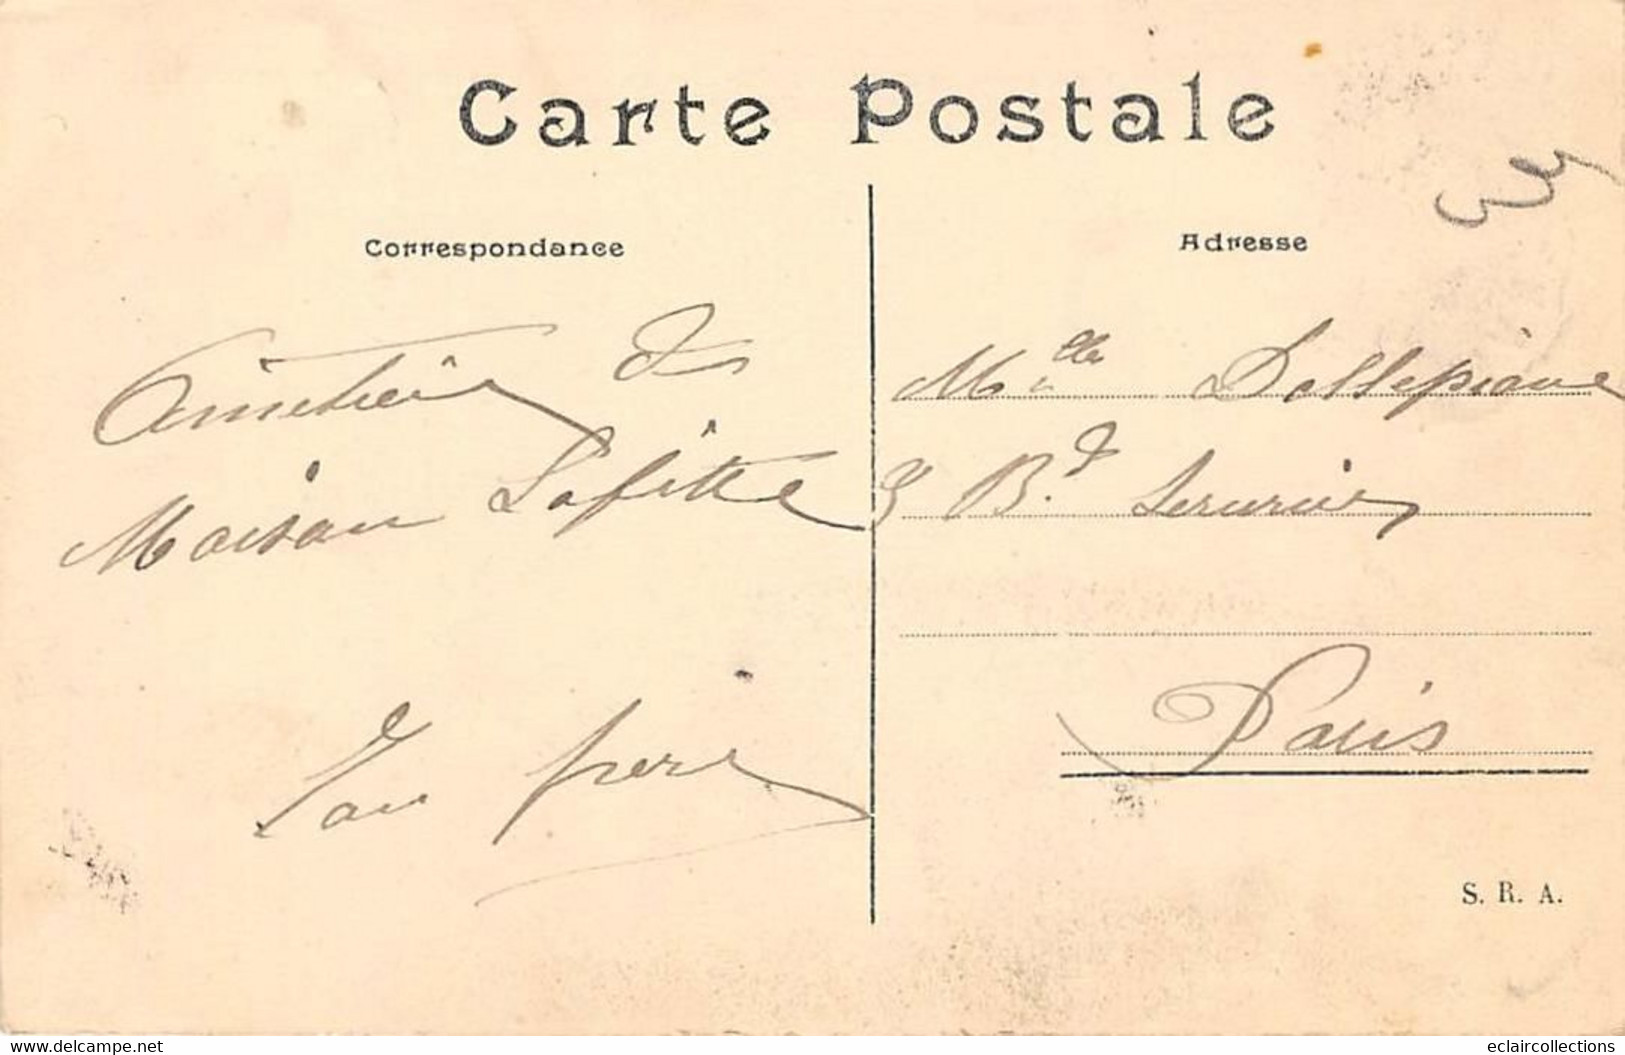 Carte Postale
Correspondance
Adresse
de
Maison Lafitte
Ton frere
Melle Dellepiane
3 Bd Serurier
Paris
S. R. A.
www.delcampe.net
eclaircollections